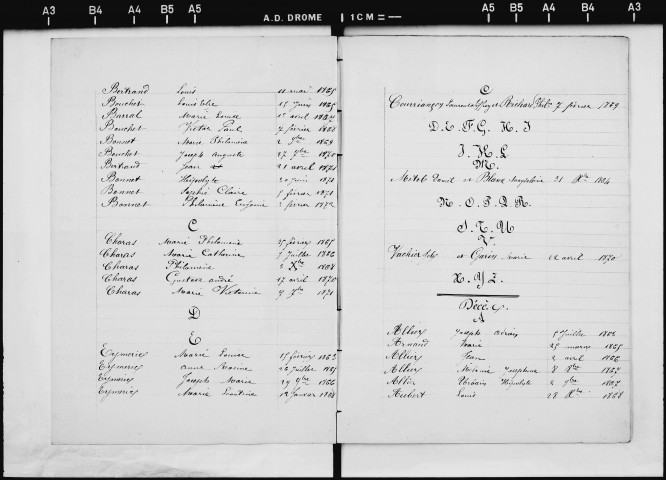 A3 B4 A4 B5 A5 A.D. DROME 1CM = A5 B5 A4 B4 A3
Bertrand Louis 11 mai 1865
Bouchet Louis Elie 15 Juin 1865
Barral Marie Louise 1er avril 1867
Bouchet Victor Paul 7 février 1868
Bonnet Marie Philomène 2 9bre 1869
Bouchet Joseph Auguste 27 7bre 1870
Bertrand Jean 21 avril 1871
Bonnet Hippolyte 20 Juin 1871
Bonnet Sophie Claire février 1871
Bonnet Philomène Eugénie 2 février 1872
C
Charas Marie Philomène 25 février 1865
Charas Marie Catherine 7 Juillet 1866
Charas Philomène 2 Xbre 1868
Charas Gustave André 17 avril 1870
Charas Marie Victorine 9 1871
D
E
Eymerier Marie Louise 15 février 1863
Eymerier Juillet 1865
Eymerier Joseph Marie 29 9bre 1866
Eymerier Marie Léontine 12 Janvier 1868
C
Courriançoy et Richard 7 février 1869
D. E. F. G. H. I
J. K. L
M.
Daniel et 21 Xbre 1864
N. O. P. Q. R.
S. T. U
V.
Vachier et Garin Marie avril 1870
X. Y. Z.
Décès.
A
Allier Joseph Adrien Juillet 1862
Arnaud Marie 25 mars 1865
Allier Jean 2 avril 1866
Allier Joséphine 8 1867
Allier Urbain Hippolyte 2 9bre 1867
Aubert Louis 28 Xbre 1868
A3 B4 A4 B5 A5 A5 B5 A4 B4 A3